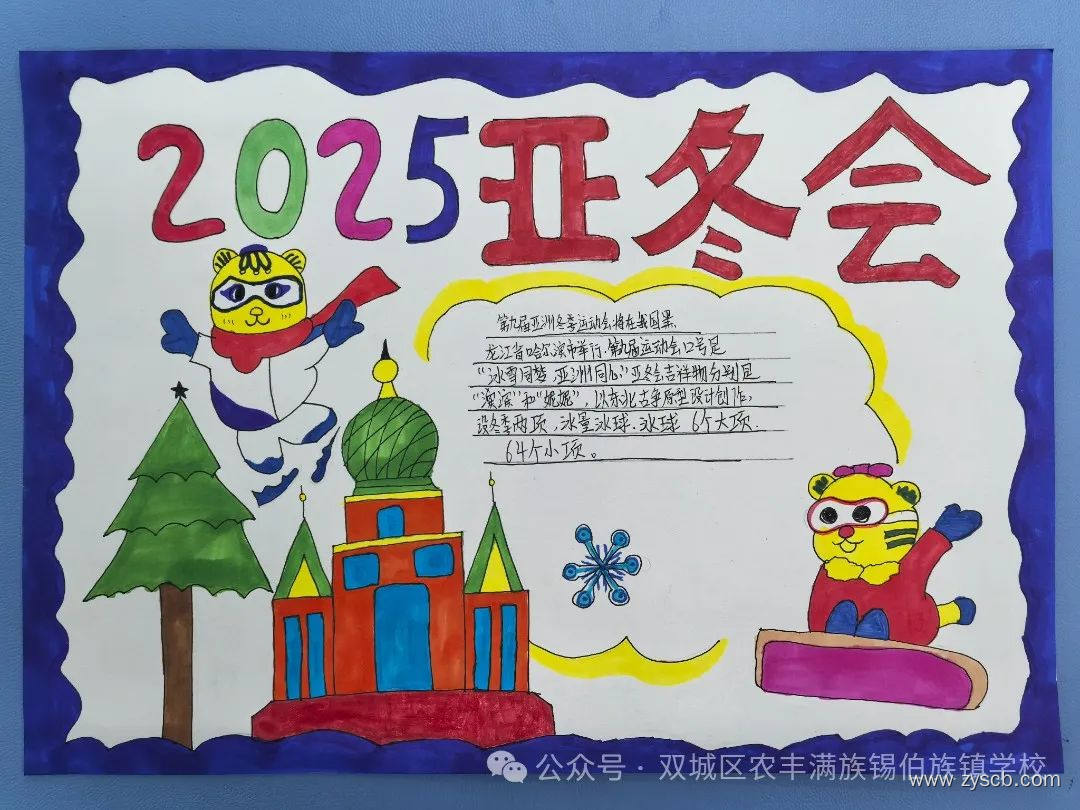 2025亚冬会
第九届亚洲冬季运动会将在我国黑
龙江省哈尔滨市举行.第九届运动会口号是
“冰雪同梦,亚洲同心”亚冬会吉祥物分别是
“滨滨”和“妮妮”,以东北古虎原型设计创作,
设冬季两项,冰壶冰球.冰球 6个大项.
64个小项。
公众号 · 双城区农丰满族锡伯族镇学校
www.zyscb.com